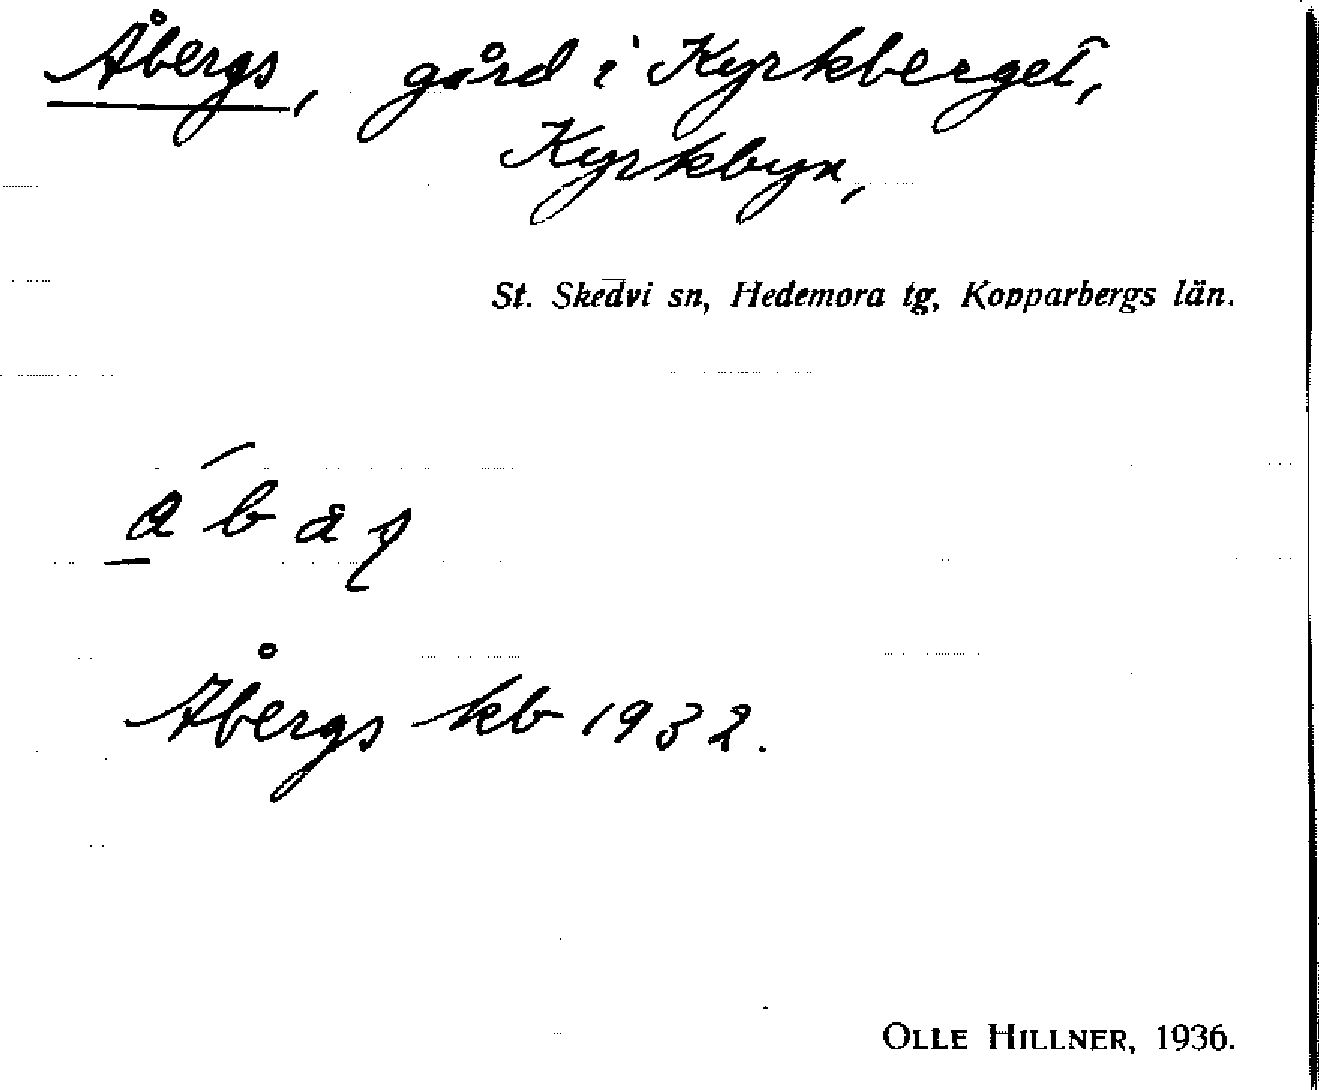 Åbergs, gård i Kyrkberget,
Kyrkbyn,
St. Skedvi sn, Hedemora tg, Kopparbergs län.
Åbergs kb 1932.
OLLE HILLNER, 1936.